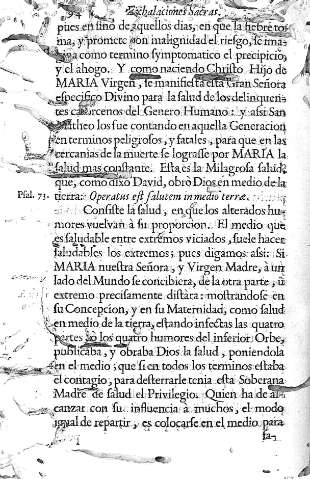 94 Exhalaciones Sacras.
pues en sino de aquellos dias, en que la fiebre to-
ma, y promete con malignidad el riesgo, se ima-
gina como termino symptomatico el precipicio,
y el ahogo. Y como naciendo Christo Hijo de
MARIA Virgen, se manifiesta esta Gran Señora
especifico Divino para la salud de los delinquen-
tes catorcenos del Genero Humano: y assi San
Matheo los fue contando en aquella Generacion
en terminos peligrosos, y fatales, para que en las
cercanias de la muerte se lograsse por MARIA la
salud mas constante. Esta es la Milagrosa salud,
que, como dixo David, obrò Dios en medio de la
Psal. 73. tierra: Operatus est salutem in medio terræ.
Consiste la salud, en que los alterados hu-
mores vuelvan à su proporcion. El medio que
es saludable entre extremos viciados, suele hacer
saludables los extremos; pues digamos assi: Si
MARIA nuestra Señora, y Virgen Madre, à un
lado del Mundo se concibiera, de la otra parte, ù
extremo precisamente distàra: mostrandose en
su Concepcion, y en su Maternidad, como salud
en medio de la tierra, estando infectas las quatro
partes, ò los quatro humores del inferior Orbe,
publicaba, y obraba Dios la salud, poniendola
en el medio; que si en todos los terminos estaba
el contagio, para desterrarle tenia esta Soberana
Madre de salud el Privilegio. Quien ha de al-
canzar con su influencia à muchos, el modo
igual de repartir, es colocarse en el medio para
fa-